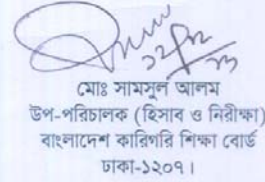 ১২/১২/২৩
মোঃ সামসুল আলম
উপ-পরিচালক (হিসাব ও নিরীক্ষা)
বাংলাদেশ কারিগরি শিক্ষা বোর্ড
ঢাকা-১২০৭।